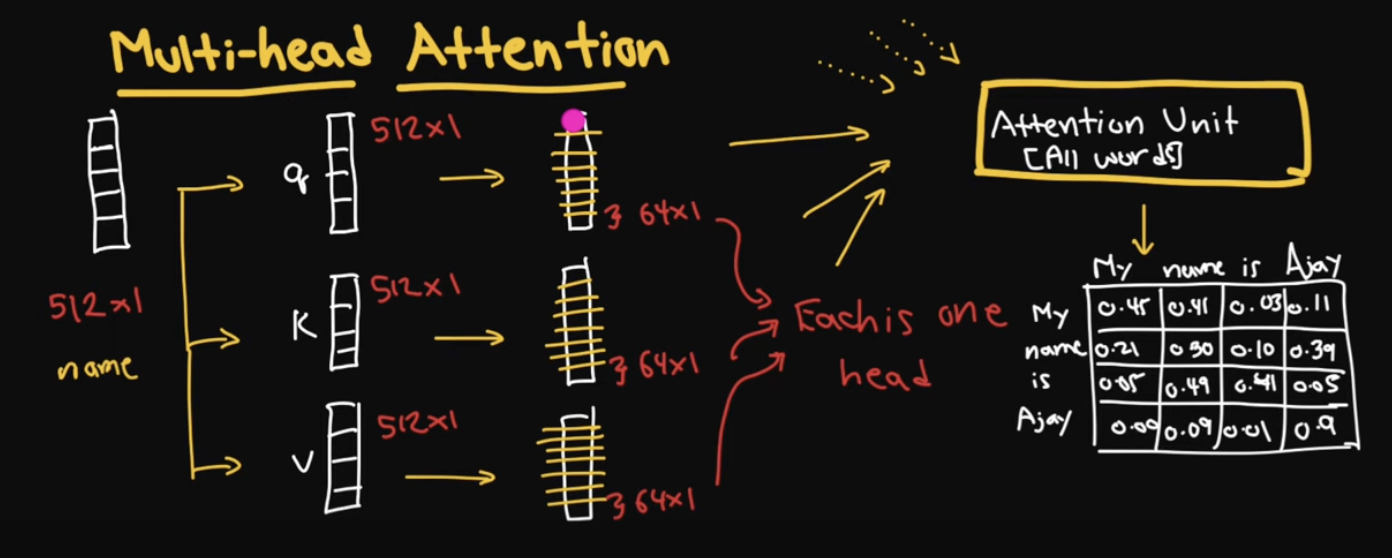 Multi-head Attention
512x1
name
q
512x1
K
512x1
V
512x1
} 64x1
} 64x1
} 64x1
Each is one
head
Attention Unit
[All words]
My name is Ajay
My 0.45 0.41 0.03 0.11
name 0.21 0.30 0.10 0.39
is 0.05 0.49 0.41 0.05
Ajay 0.00 0.09 0.01 0.9